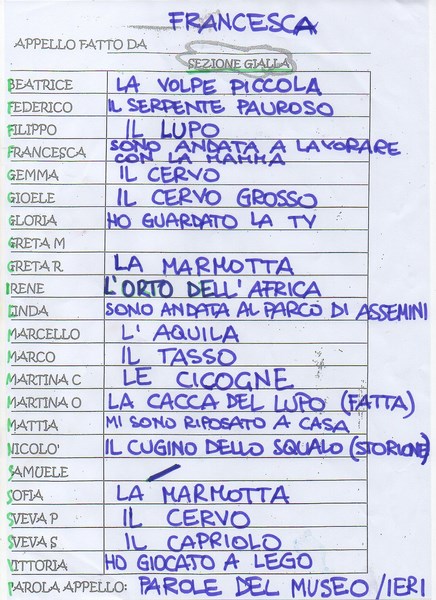 FRANCESCA
APPELLO FATTO DA
SEZIONE GIALLA
BEATRICE LA VOLPE PICCOLA
FEDERICO IL SERPENTE PAUROSO
FILIPPO IL LUPO
FRANCESCA SONO ANDATA A LAVORARE
CON LA MAMMA
GEMMA IL CERVO
GIOELE IL CERVO GROSSO
GLORIA HO GUARDATO LA TV
GRETA M
GRETA R. LA MARMOTTA
IRENE L'ORTO DELL'AFRICA
LINDA SONO ANDATA AL PARCO DI ASSEMINI
MARCELLO L'AQUILA
MARCO IL TASSO
MARTINA C LE CICOGNE
MARTINA O LA CACCA DEL LUPO (FATTA)
MATTIA MI SONO RIPOSATO A CASA
NICOLO' IL CUGINO DELLO SQUALO (STORIONE)
SAMUELE
SOFIA LA MARMOTTA
SVEVA P IL CERVO
SVEVA S IL CAPRIOLO
VITTORIA HO GIOCATO A LEGO
PAROLA APPELLO: PAROLE DEL MUSEO/IERI